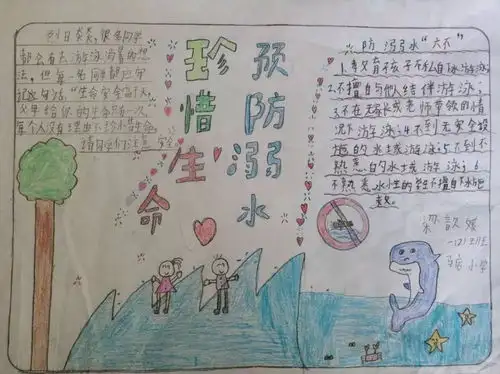 烈日炎炎，很多同学
都会去游泳消暑的想
法，但每一名同学都应牢
记这句话："生命安全高于天，
父母给你的生命随一次，
每个人没有理由不珍惜生命。
请同学们注意安全
珍惜生命
预防溺水
防溺水"六不"
1.
2.不擅自与他人结伴游泳；
3.不在无家长或老师带领的情
况下游泳；4.不到无安全设
施的水域游泳；5.不到不
熟悉的水域游泳；6.
不熟悉水性的学生不擅自下水施
救。
梁
一(2)班
小学